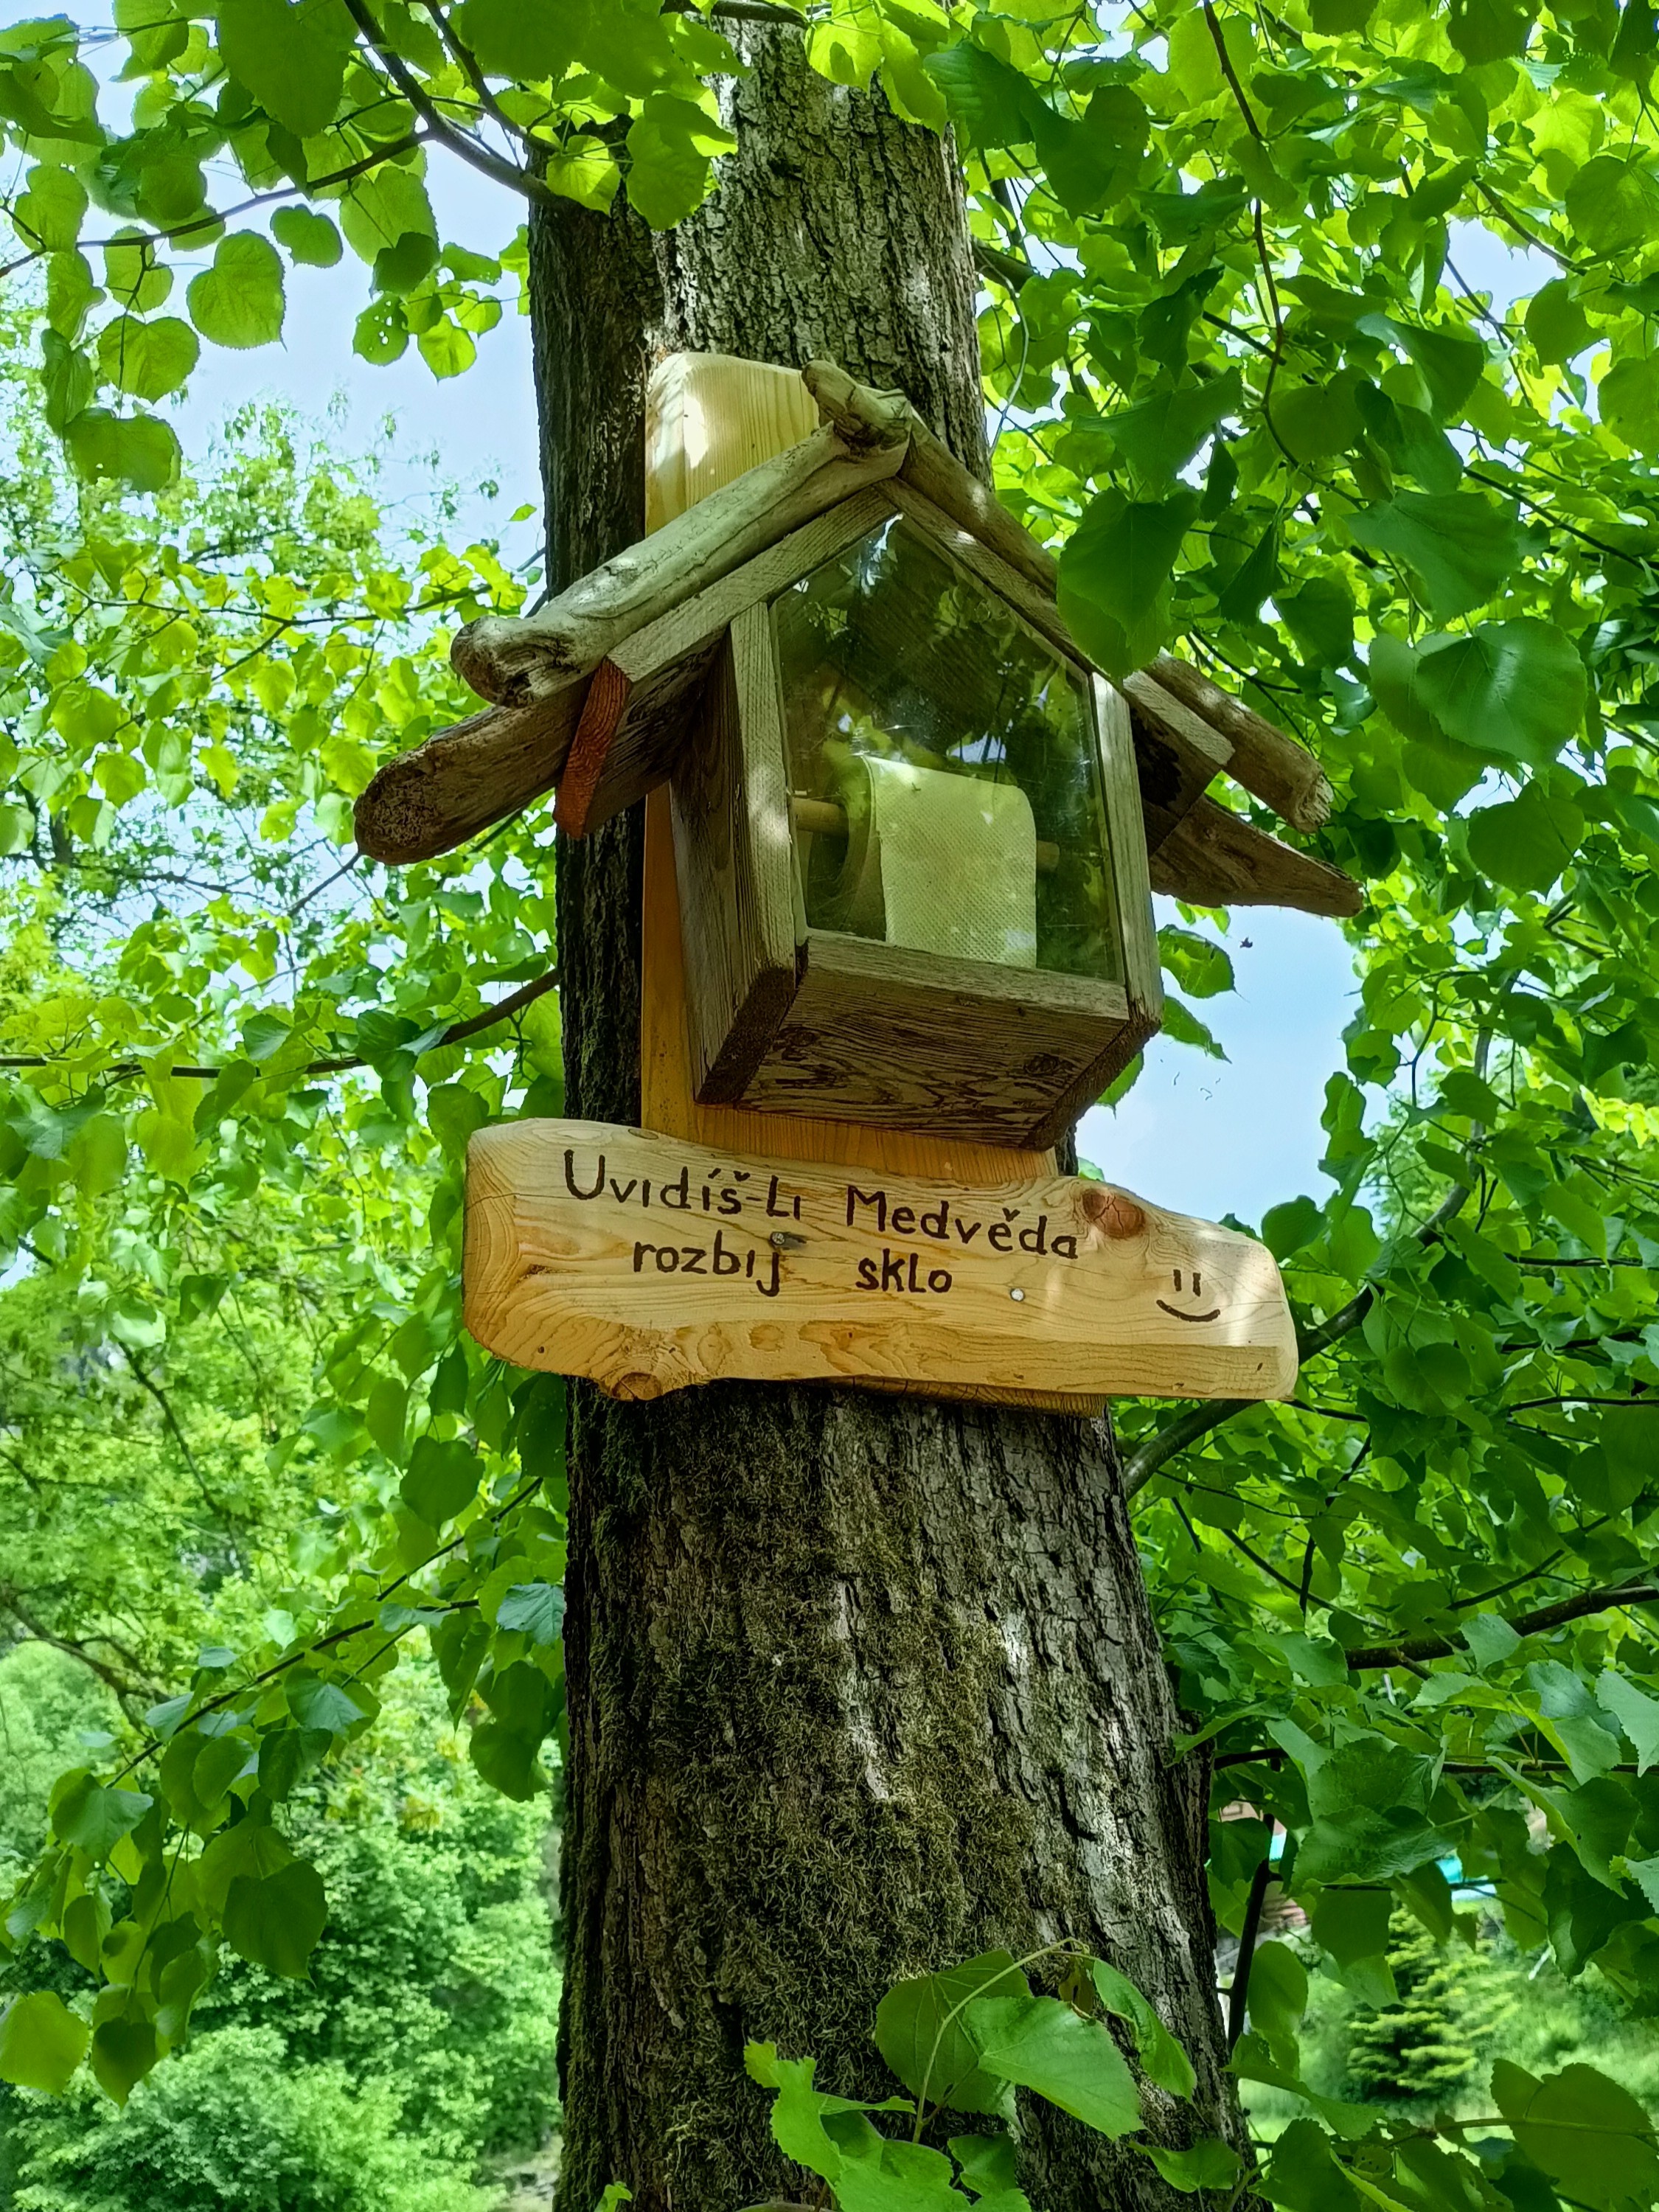 Uvidíš-li Medvěda
rozbij sklo